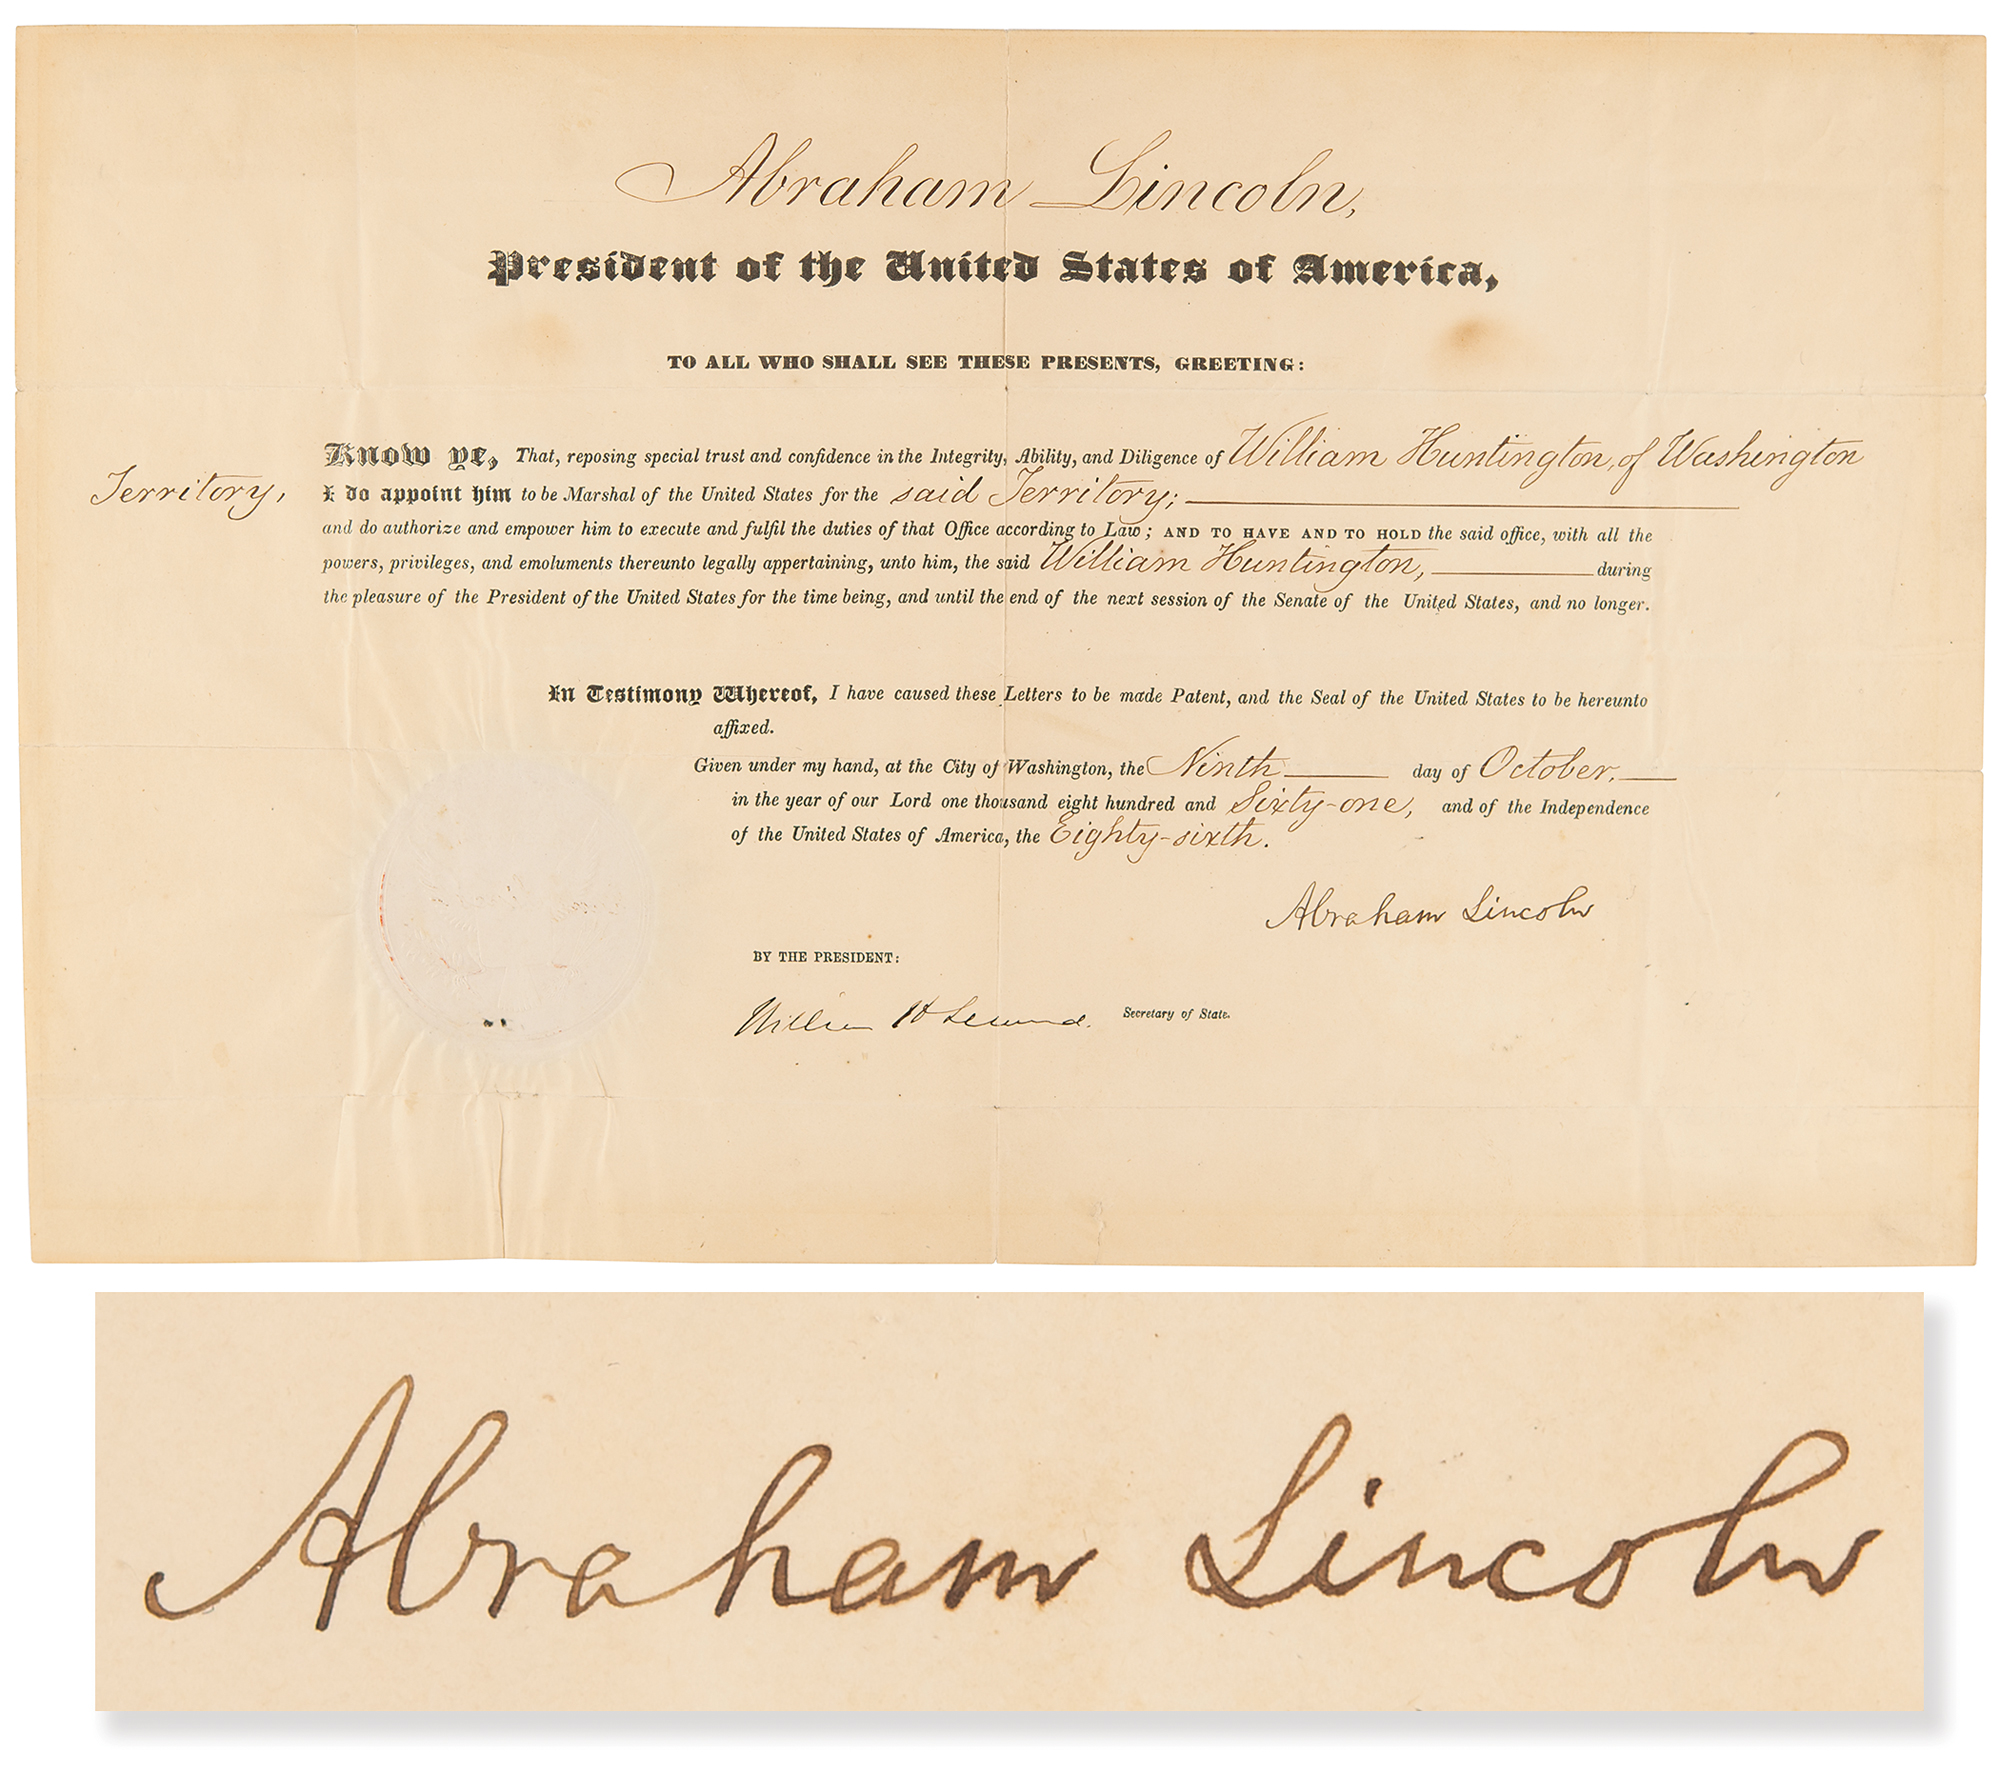 Abraham Lincoln,
President of the United States of America,
TO ALL WHO SHALL SEE THESE PRESENTS, GREETING:
Know ye, That, reposing special trust and confidence in the Integrity, Ability, and Diligence of William Huntington, of Washington
Territory, I do appoint him to be Marshal of the United States for the said Territory;
and do authorize and empower him to execute and fulfil the duties of that Office according to Law; AND TO HAVE AND TO HOLD the said office, with all the
powers, privileges, and emoluments thereunto legally appertaining, unto him, the said William Huntington, during
the pleasure of the President of the United States for the time being, and until the end of the next session of the Senate of the United States, and no longer.
In Testimony Whereof, I have caused these Letters to be made Patent, and the Seal of the United States to be hereunto
affixed.
Given under my hand, at the City of Washington, the Ninth day of October,
in the year of our Lord one thousand eight hundred and Sixty-one, and of the Independence
of the United States of America, the Eighty-sixth.
Abraham Lincoln
BY THE PRESIDENT:
William H Seward. Secretary of State.
Abraham Lincoln